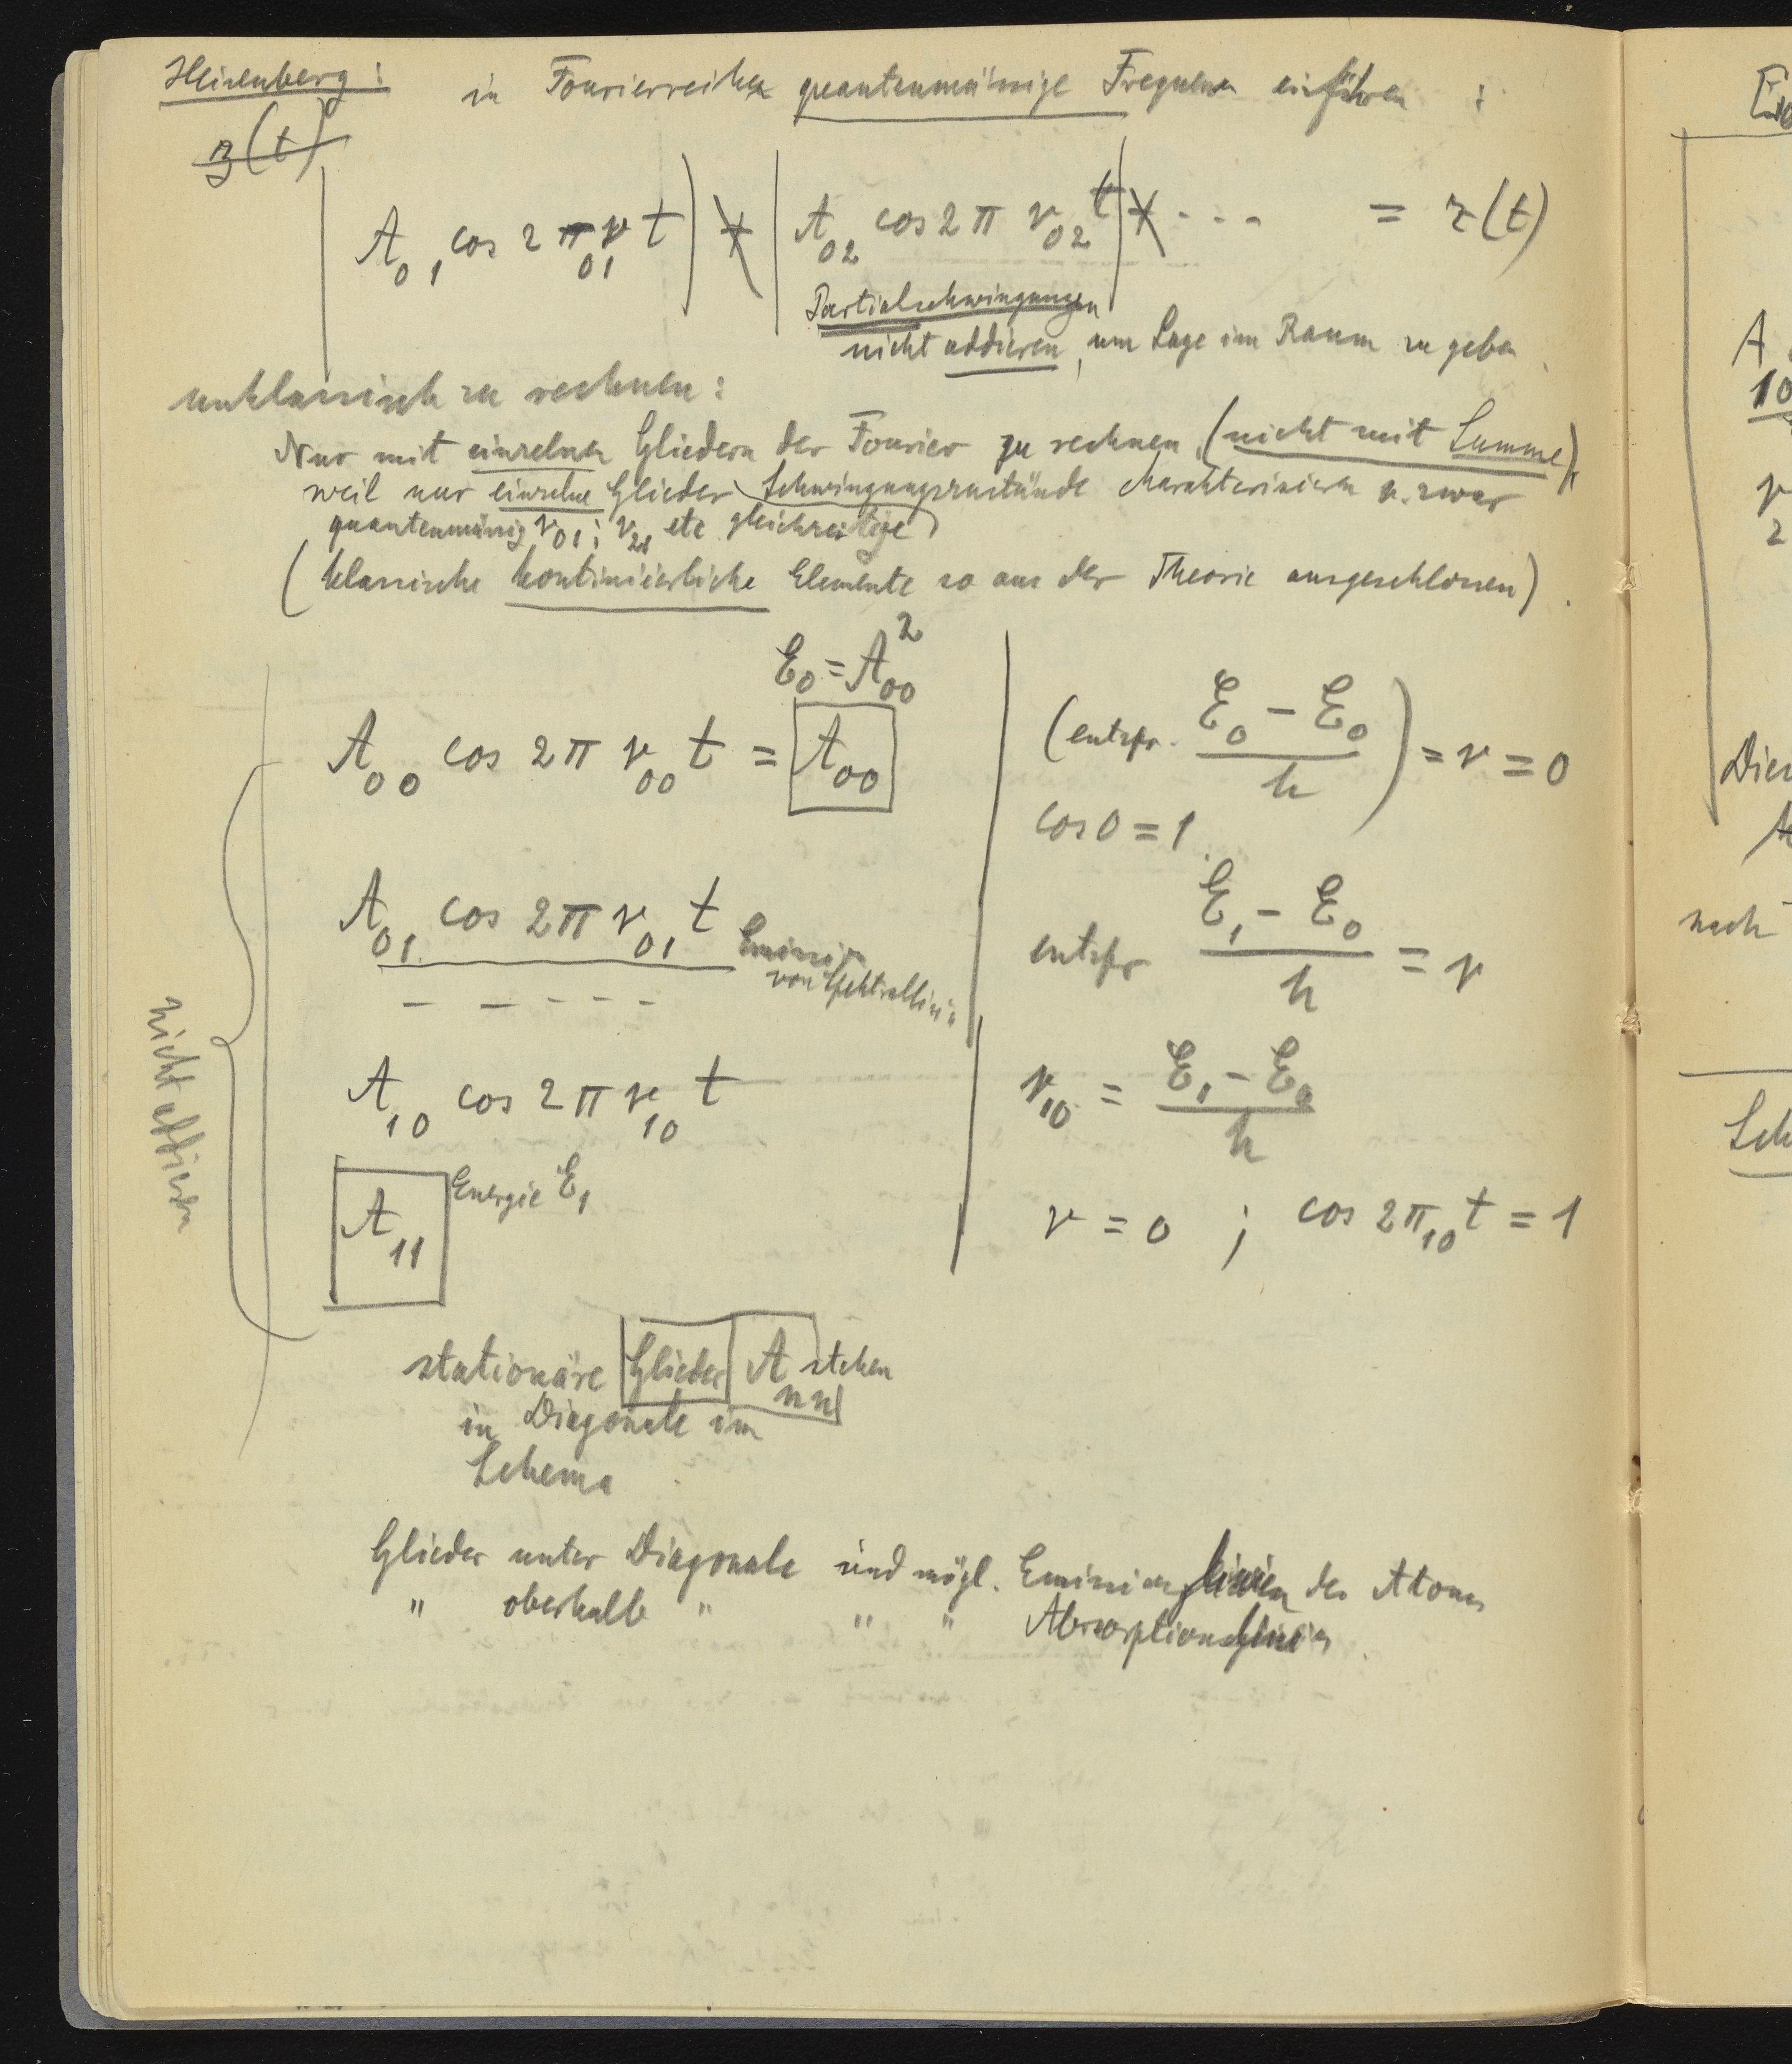 Heisenberg: in Fourierreihen quantenmässige Frequenzen einführen :
z(t)
A01 cos 2π ν01 t + A02 cos 2π ν02 t + ... = z(t)
Partialschwingungen
nicht addieren, um Lage im Raum zu geben
unklassisch zu rechnen:
Nur mit einzelnen Gliedern der Fourier zu rechnen (nicht mit Summe),
weil nur einzelne Glieder Schwingungszustände charakterisieren u. zwar
quantenmässig ν01; ν21 etc gleichzeitige
(klassische kontinuierliche Elemente so aus der Theorie ausgeschlossen).
E0 = A00²
A00 cos 2π ν00 t = A00 (entspr. (E0 − E0)/h) = ν = 0
cos 0 = 1
A01 cos 2π ν01 t Emission von Spektrallinie entspr (E1 − E0)/h = ν
– – – – –
A10 cos 2π ν10 t ν10 = (E1 − E0)/h
A11 Energie E1 ν = 0 ; cos 2π10 t = 1
nicht addieren
stationäre Glieder Ann stehen
in Diagonale im
Schema
Glieder unter Diagonale sind mögl. Emissionslinien des Atoms
" oberhalb " " " Absorptionslinien
A
10
ν
2
nach
Sch